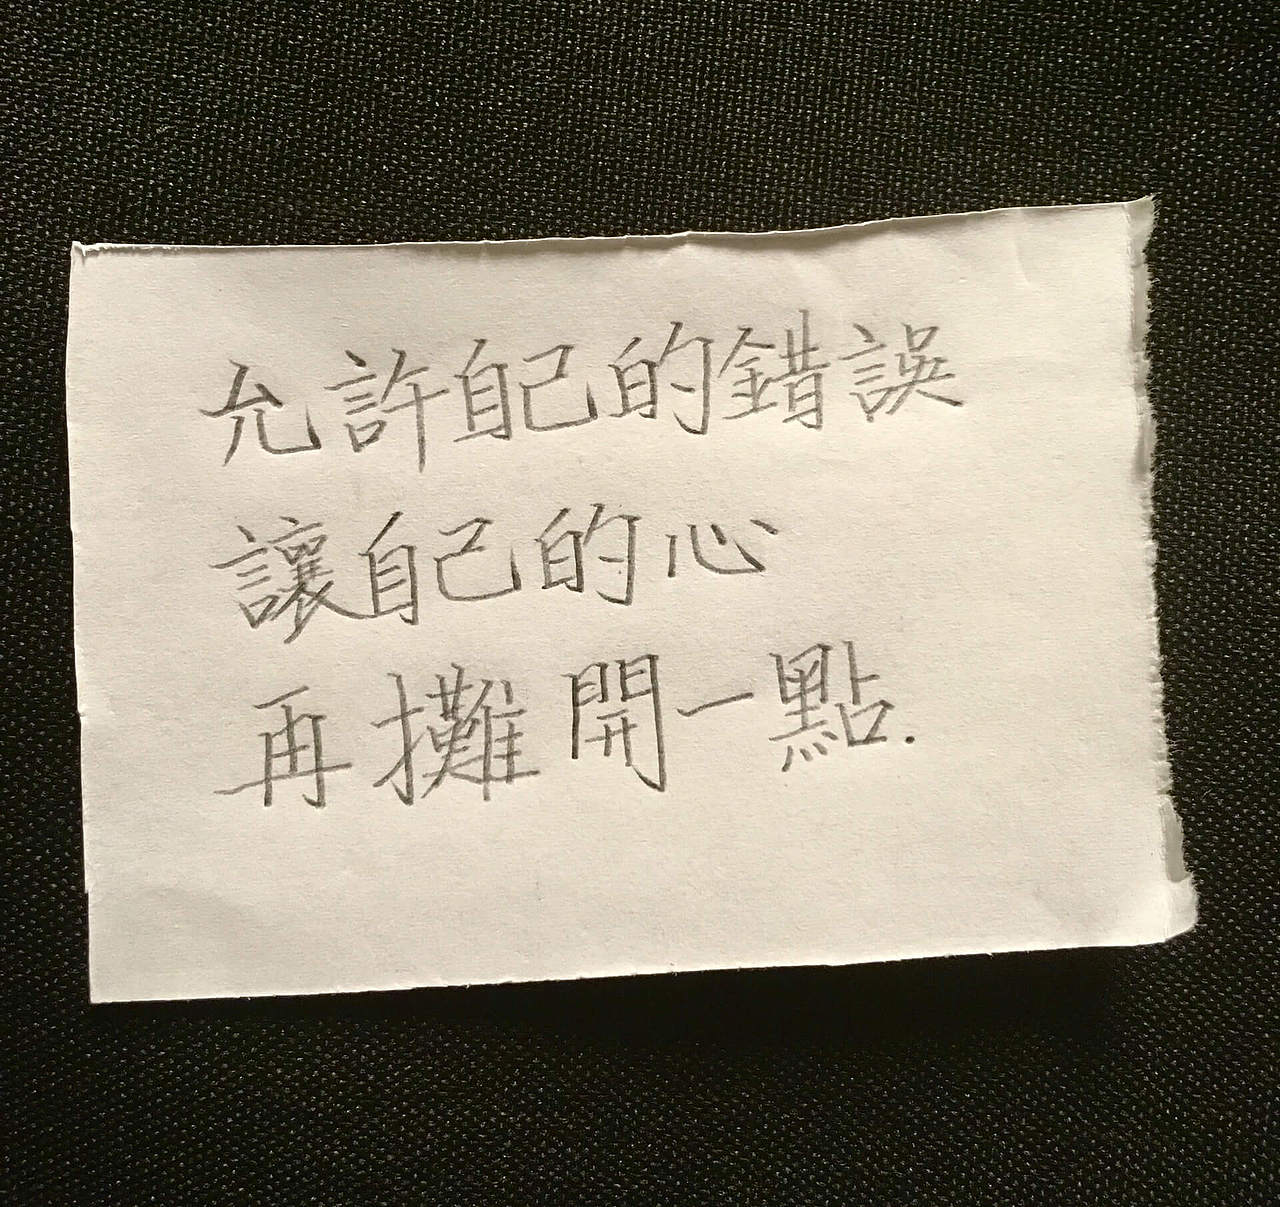 允許自己的錯誤
讓自己的心
再攤開一點.